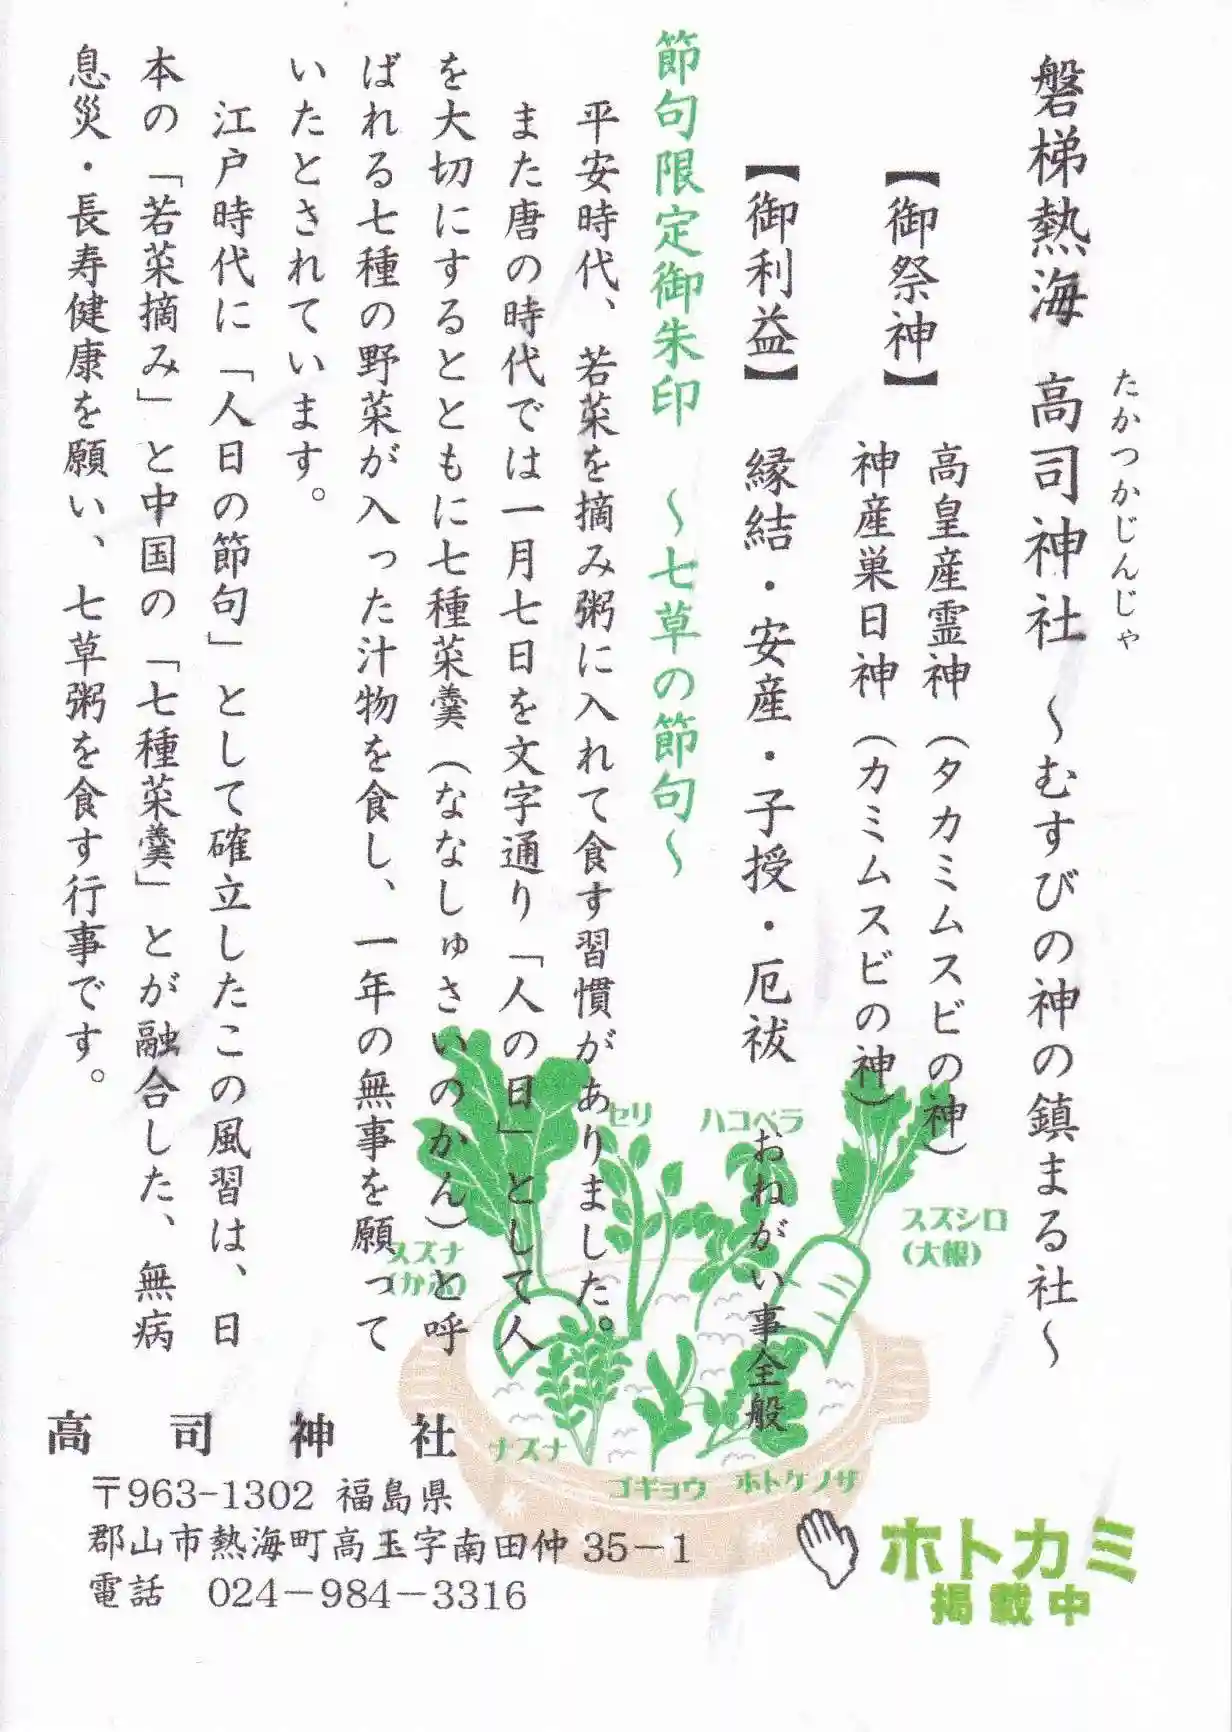 磐梯熱海 高司神社 ～むすびの神の鎮まる社～
たかつかじんじゃ
【御祭神】 高皇産霊神（タカミムスビの神）
神産巣日神（カミムスビの神）
【御利益】 縁結・安産・子授・厄祓 おねがい事全般
節句限定御朱印 ～七草の節句～
平安時代、若菜を摘み粥に入れて食す習慣がありました。
また唐の時代では一月七日を文字通り「人の日」として人
を大切にするとともに七種菜羹（ななしゅさいのかん）と呼
ばれる七種の野菜が入った汁物を食し、一年の無事を願って
いたとされています。
江戸時代に「人日の節句」として確立したこの風習は、日
本の「若菜摘み」と中国の「七種菜羹」とが融合した、無病
息災・長寿健康を願い、七草粥を食す行事です。
セリ
ハコベラ
スズシロ
(大根)
スズナ
(かぶ)
ナズナ
ゴギョウ
ホトケノザ
高司神社
〒963-1302 福島県
郡山市熱海町高玉字南田仲35－1
電話 024－984－3316
ホトカミ
掲載中